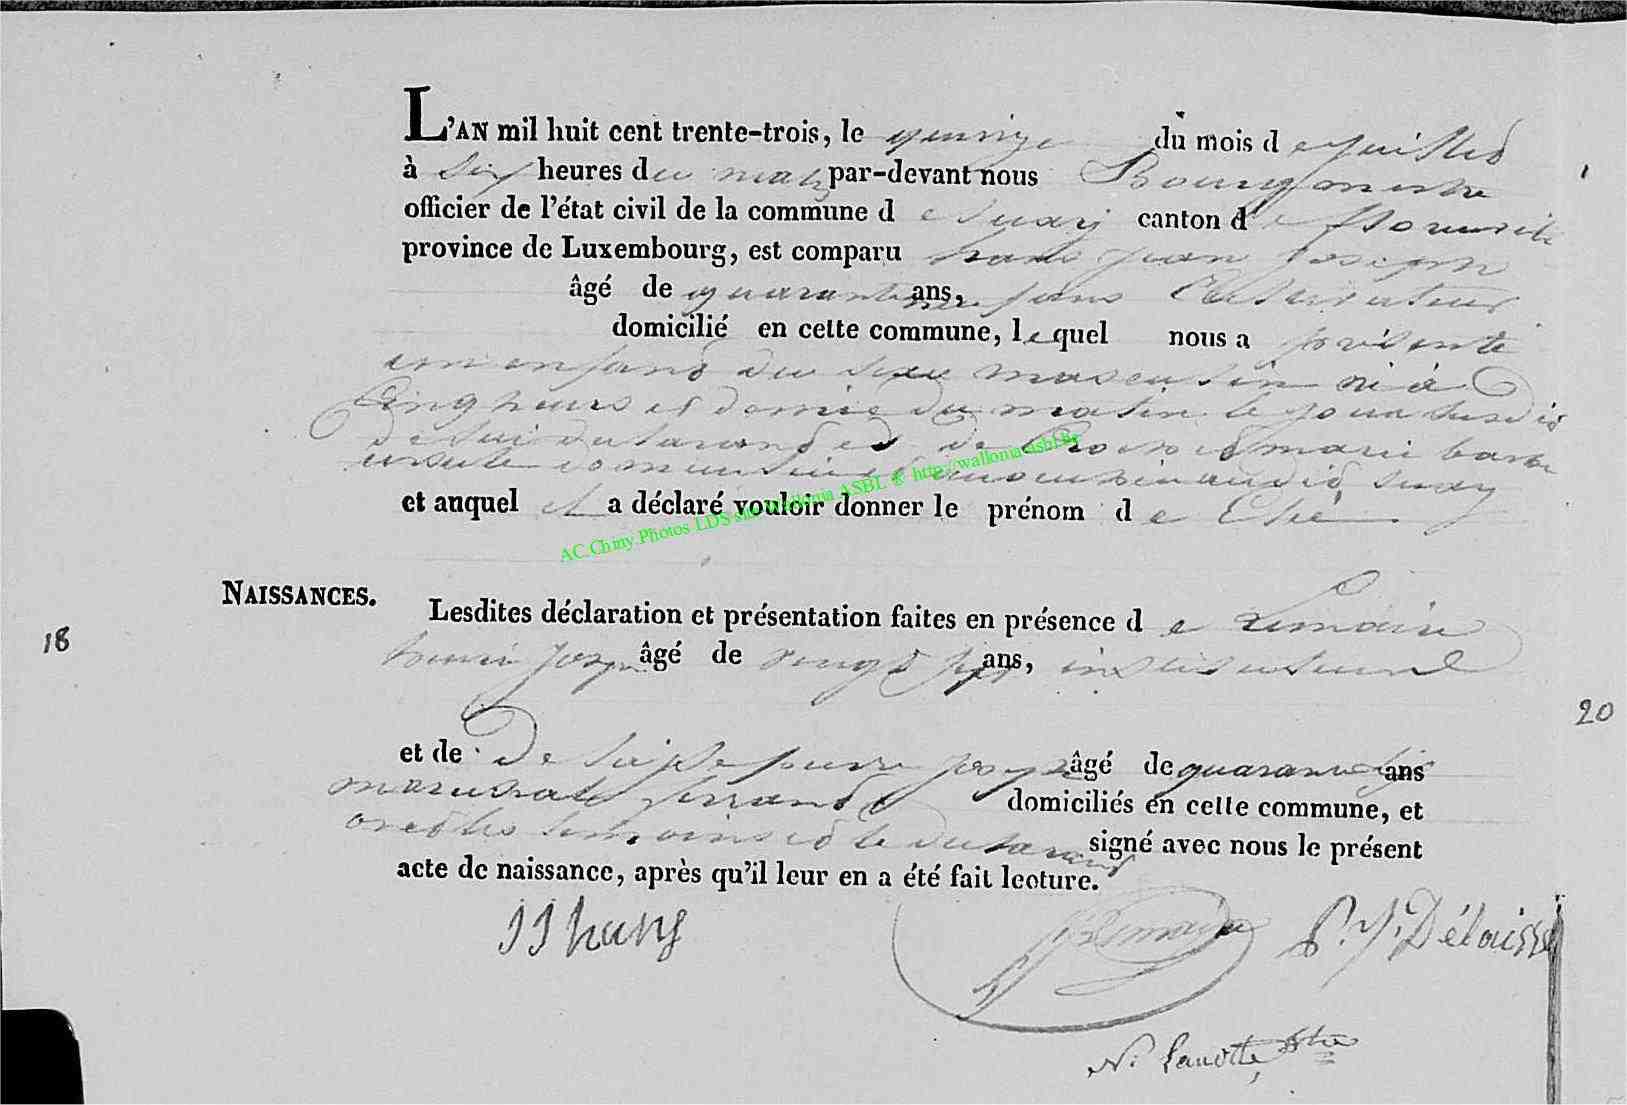 L'AN mil huit cent trente-trois, le quinze du mois de juillet
à six heures du matin par-devant nous Bourgmestre
officier de l'état civil de la commune de Suxy canton de
province de Luxembourg, est comparu hans jean joseph
âgé de quarante ans, Cultivateur
domicilié en cette commune, lequel nous a présenté
un enfant du sexe masculin né à
Cinq heures et demie du matin le jour susdit
de lui déclarant et de marie barbe
Suxy
et auquel il a déclaré vouloir donner le prénom de Elié
AC.Chiny.Photos LDS site Wallonia ASBL © http://wallonia-asbl.be
NAISSANCES.
Lesdites déclaration et présentation faites en présence de Lemaire
18
henri joseph âgé de vingt ans, instituteur
20
et de Delaisse pierre joseph âgé de quarante ans
marechal ferrant domiciliés en cette commune, et
ont les temoins et le declarant signé avec nous le présent
acte de naissance, après qu'il leur en a été fait lecture.
JJ hans
Lemaire
P. J. Délaisse
N. Lanotte